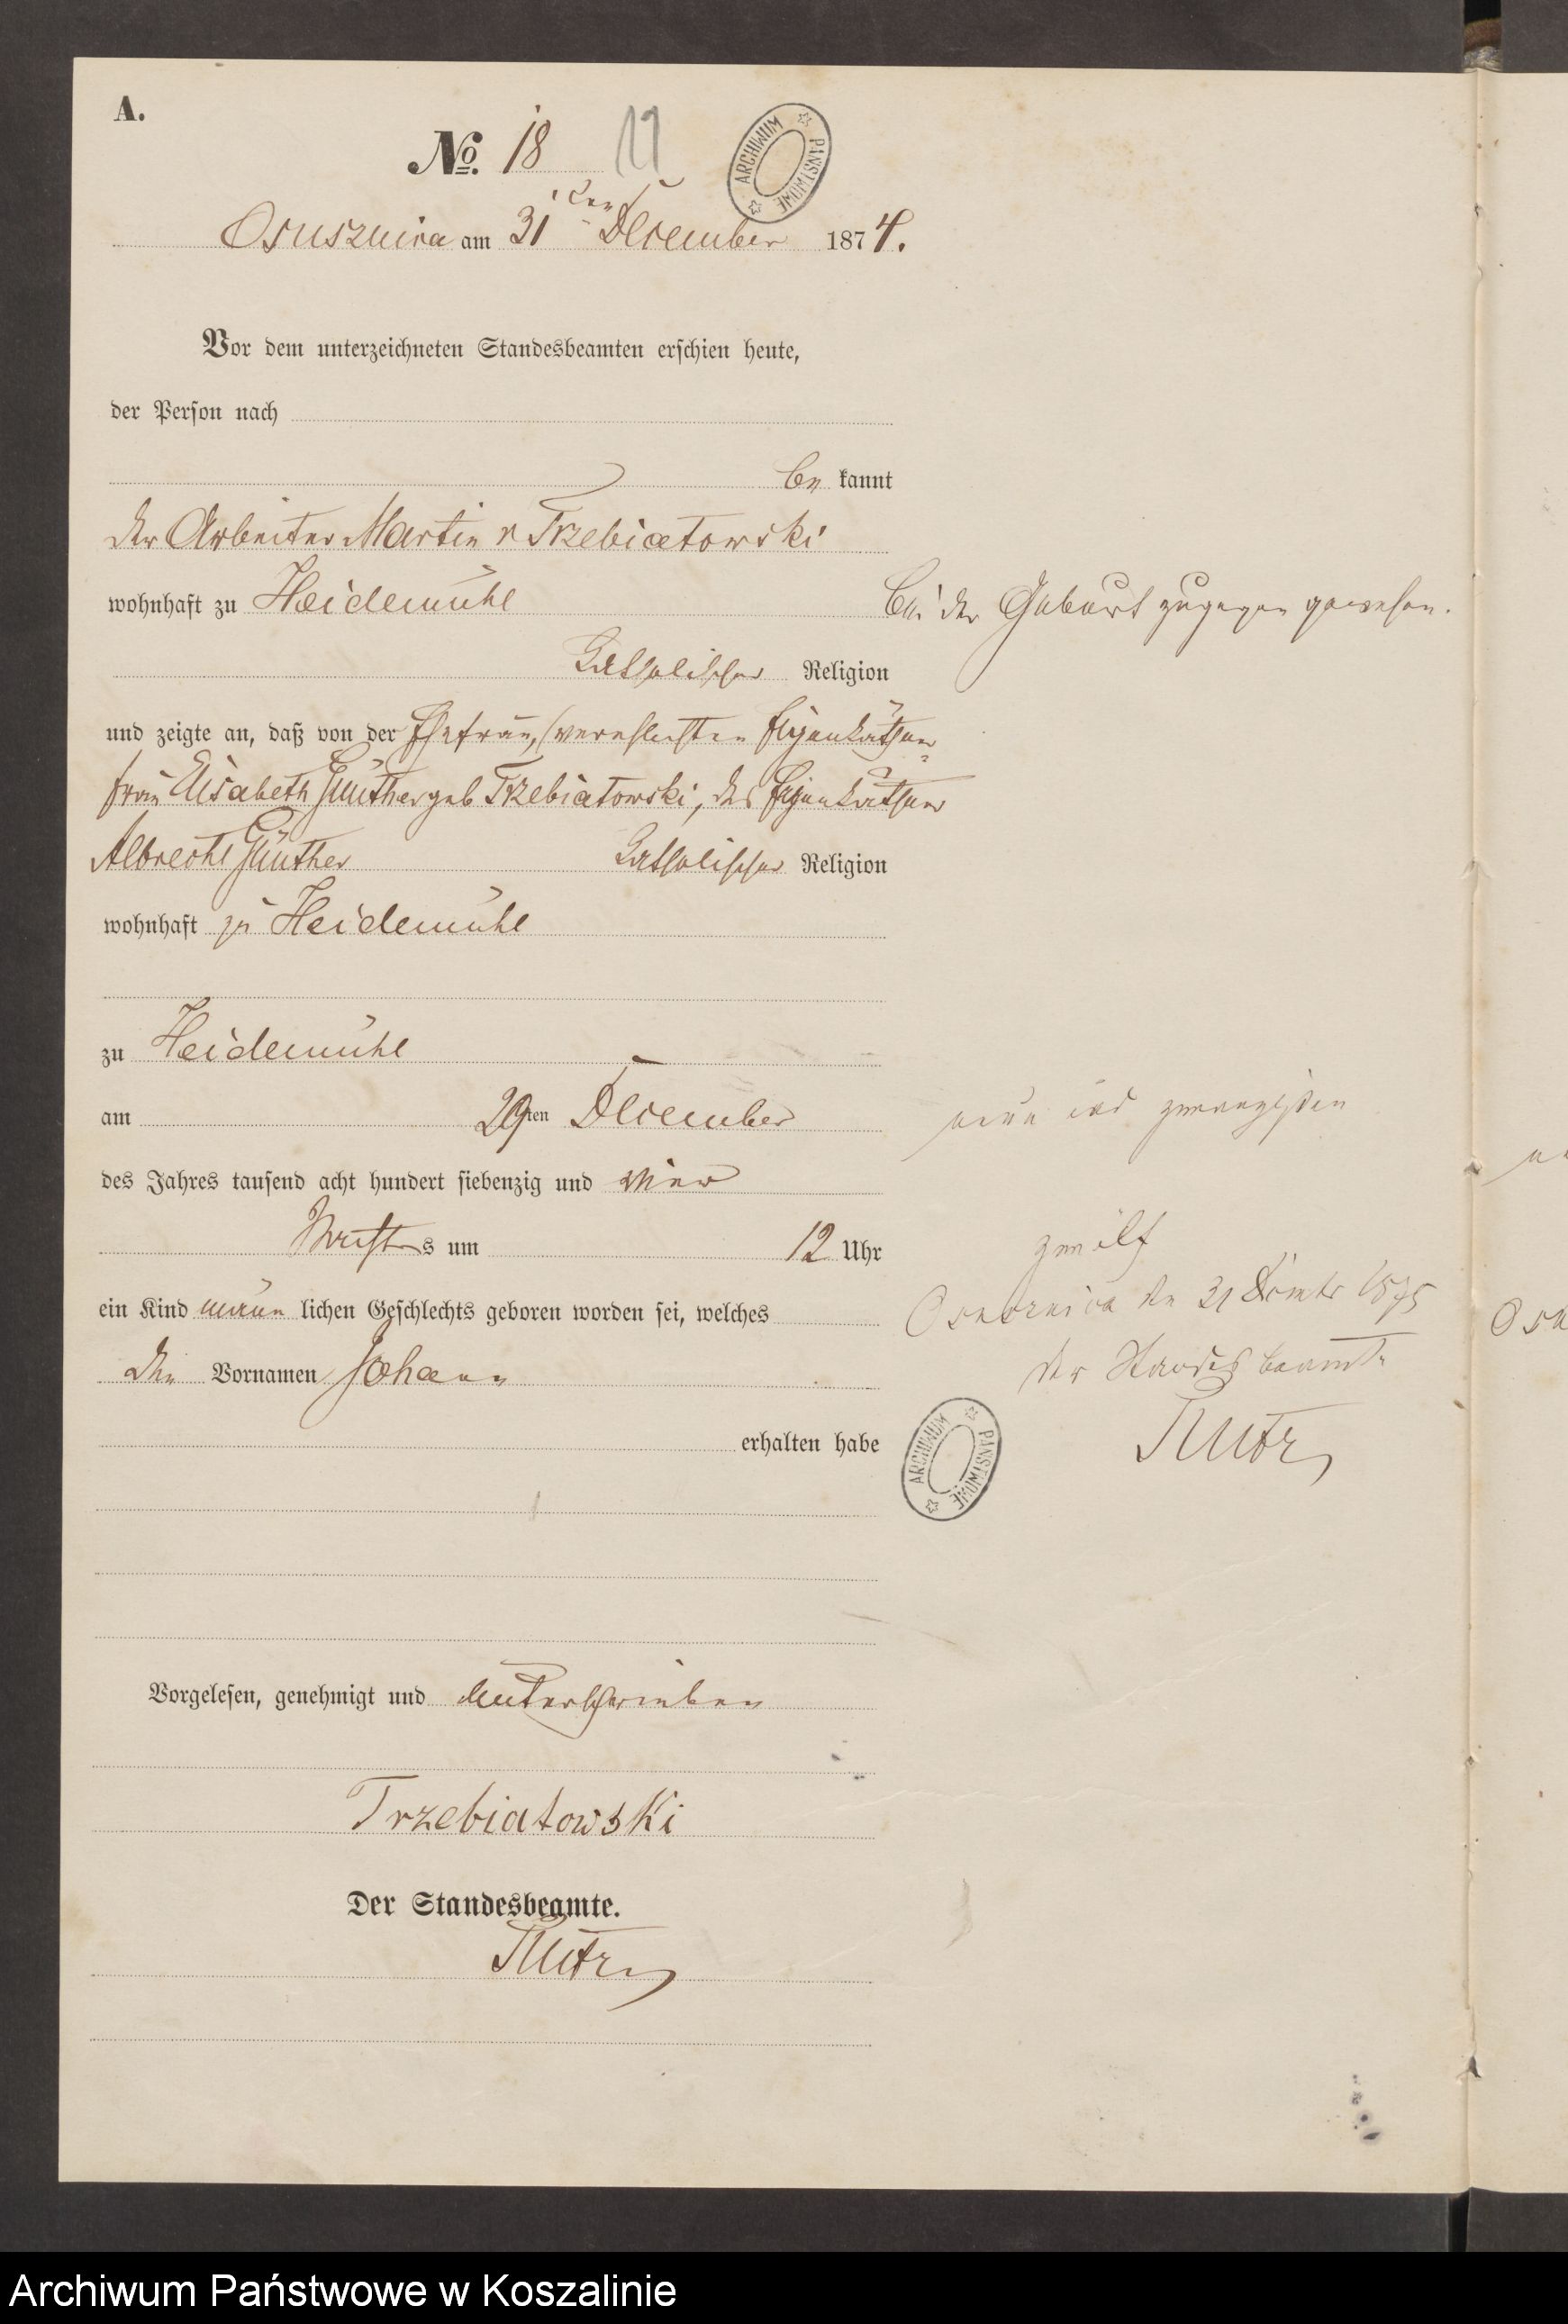 A.
No. 18 11
ARCHIWUM PAŃSTWOWE
Osusznica am 31ten December 1874.
Vor dem unterzeichneten Standesbeamten erschien heute,
der Person nach
be kannt
der Arbeiter Martin v Trzebiatowski
wohnhaft zu Heidemühl
bei der Geburt zugegen gewesen.
Katholischer Religion
und zeigte an, daß von der Ehefrau, (verehlichten Eigenkäthner
frau Elisabeth Günther geb Trzebiatowski, des Eigenkäthner
Albrecht Günther Katholischer Religion
wohnhaft zu Heidemühl
zu Heidemühl
am 29ten December
neun und zwanzigsten
des Jahres tausend acht hundert siebenzig und vier
Nachts um 12 Uhr
zwölf
ein Kind männ lichen Geschlechts geboren worden sei, welches
Osusznica den 31 Dcember 1875
den Vornamen Johann
der Standesbeamte
erhalten habe
ARCHIWUM PAŃSTWOWE
Vorgelesen, genehmigt und unterschrieben
Trzebiatowski
Der Standesbeamte.
Archiwum Państwowe w Koszalinie